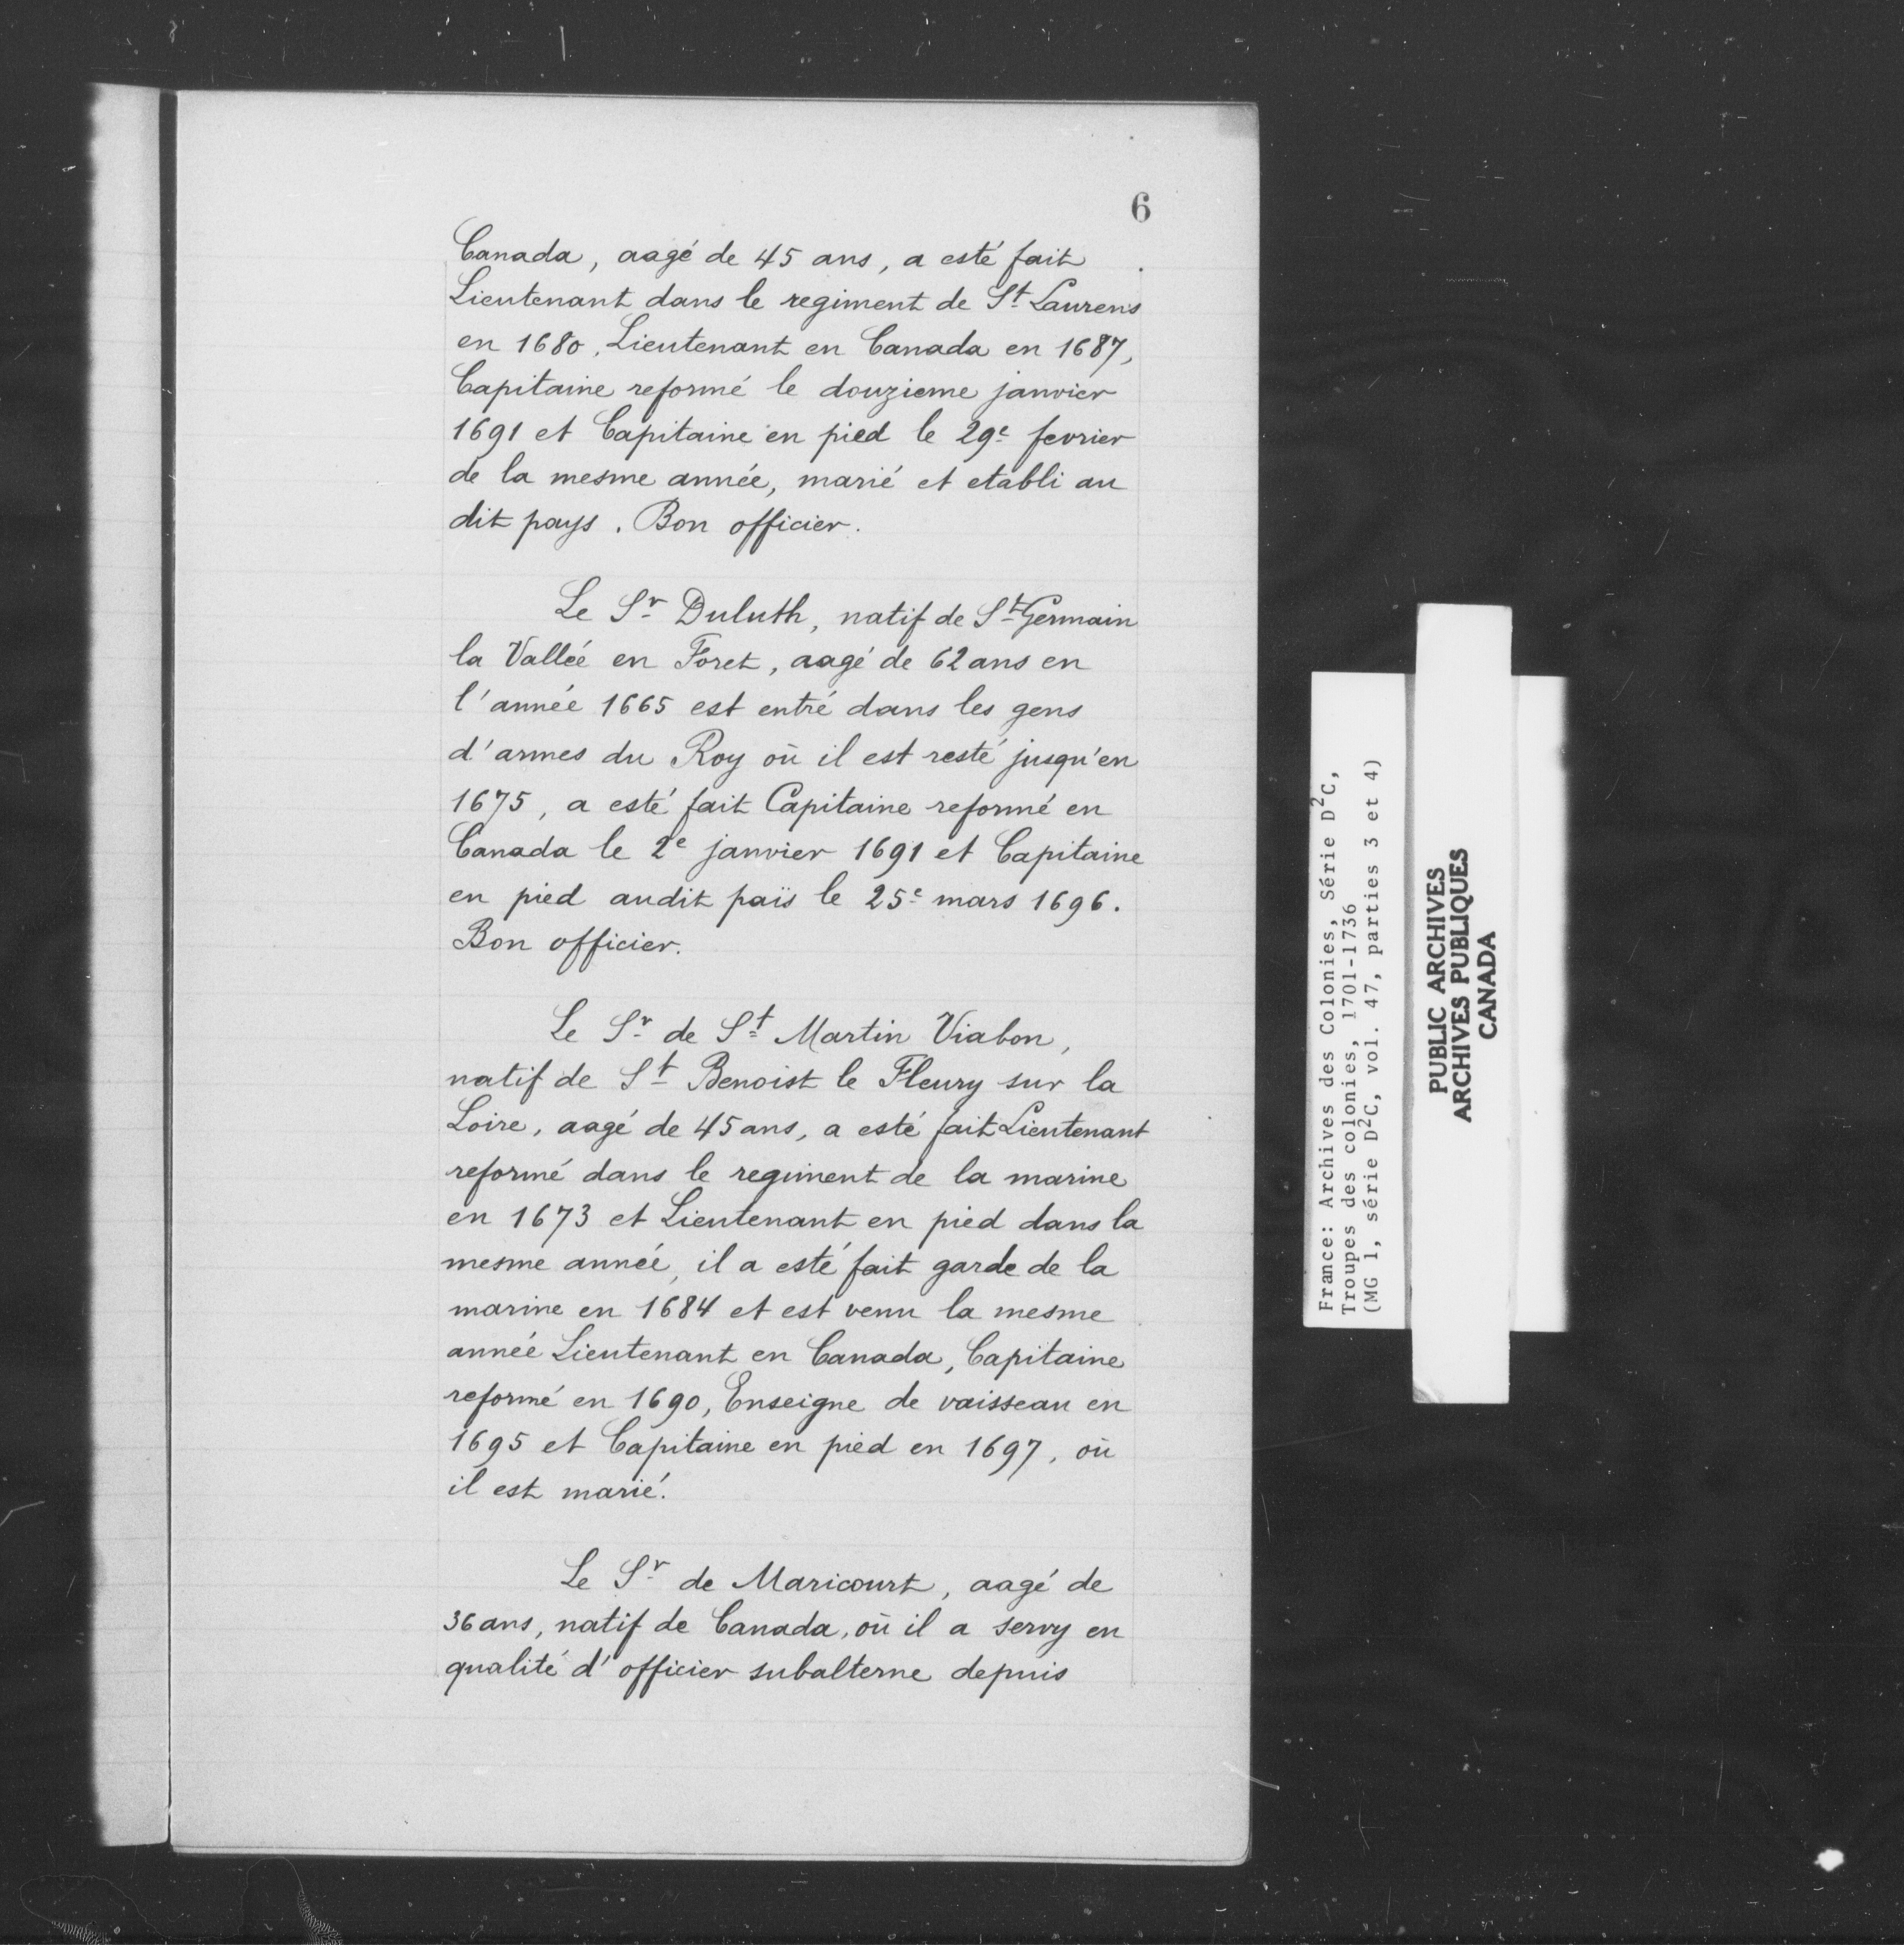 6
Canada, aagé de 45 ans, a esté fait
Lieutenant dans le regiment de St Laurens
en 1680, Lieutenant en Canada en 1687,
Capitaine reformé le douzieme janvier
1691 et Capitaine en pied le 29e fevrier
de la mesme année, marié et etabli au
dit pays. Bon officier.
Le Sr Duluth, natif de St Germain
la Vallée en Foret, aagé de 62 ans en
l'année 1665 est entré dans les gens
d'armes du Roy où il est resté jusqu'en
1675, a esté fait Capitaine reformé en
Canada le 2e janvier 1691 et Capitaine
en pied audit païs le 25e mars 1696.
Bon officier.
Le Sr de St Martin Viabon,
natif de St Benoist le Fleury sur la
Loire, aagé de 45 ans, a esté fait Lieutenant
reformé dans le regiment de la marine
en 1673 et Lieutenant en pied dans la
mesme année, il a esté fait garde de la
marine en 1684 et est venu la mesme
année Lieutenant en Canada, Capitaine
reformé en 1690, Enseigne de vaisseau en
1695 et Capitaine en pied en 1697, où
il est marié.
Le Sr de Maricourt, aagé de
36 ans, natif de Canada, où il a servy en
qualité d'officier subalterne depuis
France: Archives des Colonies, Série D²C,
Troupes des colonies, 1701-1736
(MG 1, série D²C, vol. 47, parties 3 et 4)
PUBLIC ARCHIVES
ARCHIVES PUBLIQUES
CANADA